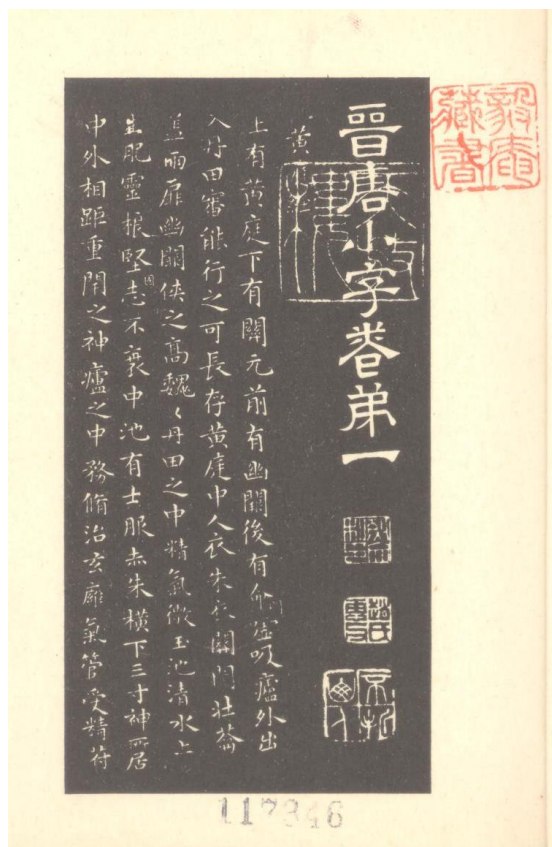 晉唐小字卷弟一
黃庭經
上有黃庭下有關元前有幽關後有命門噓吸廬外出
入丹田審能行之可長存黃庭中人衣朱衣關門壯蘥
蓋兩扉幽關俠之高魏〻丹田之中精氣微玉池清水上
生肥靈根堅固志不衰中池有士服赤朱橫下三寸神所居
中外相距重閇之神廬之中務脩治玄廱氣管受精符
毅庵
藏書
117346